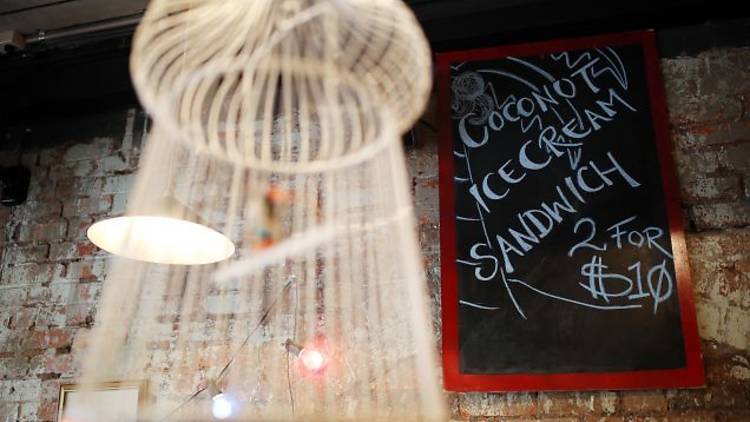 COCONUT
ICECREAM
SANDWICH
2 FOR
$10